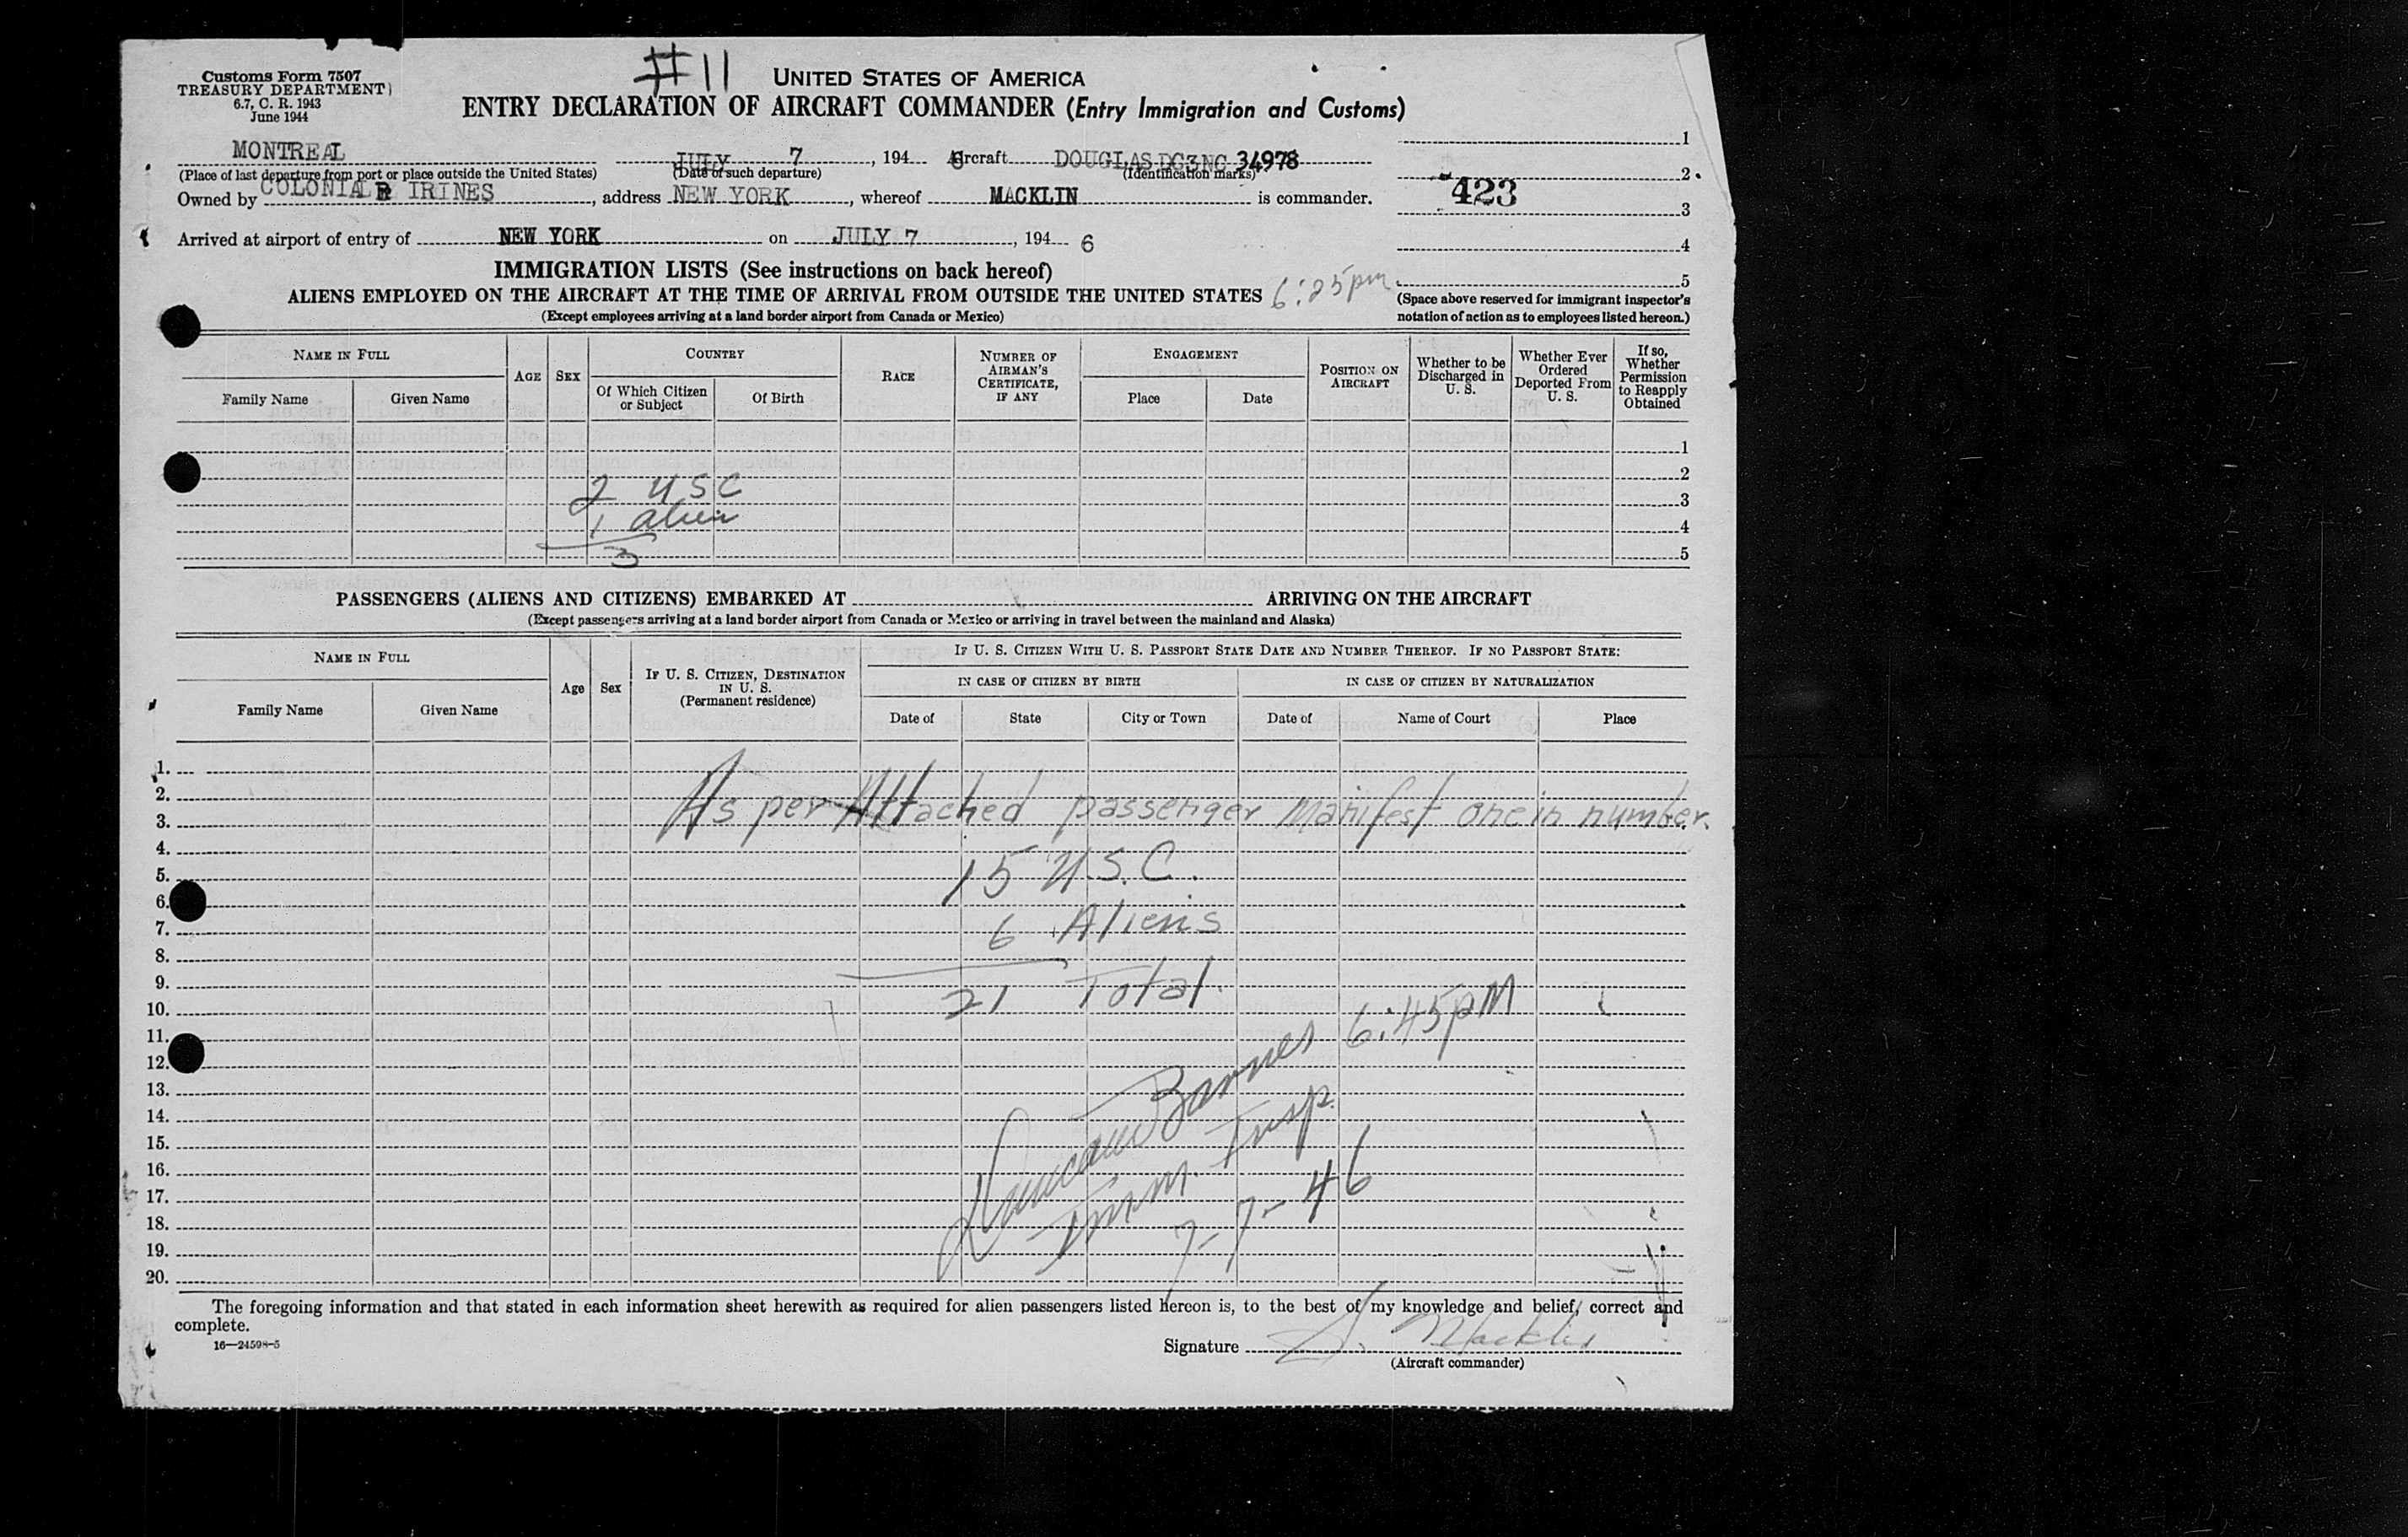 #11
Customs Form 7507
TREASURY DEPARTMENT
6.7, C. R. 1943
June 1944
UNITED STATES OF AMERICA
ENTRY DECLARATION OF AIRCRAFT COMMANDER (Entry Immigration and Customs)
MONTREAL JULY 7, 194 6 Aircraft DOUGLAS DC3 NC 34978
(Place of last departure from port or place outside the United States) (Date of such departure) (Identification marks)
Owned by COLONIAL IRINES, address NEW YORK, whereof MACKLIN is commander.
Arrived at airport of entry of NEW YORK on JULY 7, 194 6
1
2
423
3
4
5
IMMIGRATION LISTS (See instructions on back hereof)
ALIENS EMPLOYED ON THE AIRCRAFT AT THE TIME OF ARRIVAL FROM OUTSIDE THE UNITED STATES 6:25pm
(Except employees arriving at a land border airport from Canada or Mexico)
(Space above reserved for immigrant inspector's
notation of action as to employees listed hereon.)
NAME IN FULL
Family Name
Given Name
AGE
SEX
COUNTRY
Of Which Citizen or Subject
Of Birth
RACE
NUMBER OF AIRMAN'S CERTIFICATE, IF ANY
ENGAGEMENT
Place
Date
POSITION ON AIRCRAFT
Whether to be Discharged in U. S.
Whether Ever Ordered Deported From U. S.
If so, Whether Permission to Reapply Obtained
1
2
2 USC 3
1 alien 4
3 5
PASSENGERS (ALIENS AND CITIZENS) EMBARKED AT ARRIVING ON THE AIRCRAFT
(Except passengers arriving at a land border airport from Canada or Mexico or arriving in travel between the mainland and Alaska)
NAME IN FULL
Family Name
Given Name
Age
Sex
IF U. S. CITIZEN, DESTINATION IN U. S.
(Permanent residence)
IF U. S. CITIZEN WITH U. S. PASSPORT STATE DATE AND NUMBER THEREOF. IF NO PASSPORT STATE:
IN CASE OF CITIZEN BY BIRTH
IN CASE OF CITIZEN BY NATURALIZATION
Date of
State
City or Town
Date of
Name of Court
Place
1.
2.
3. As per Attached passenger Manifest one in number.
4.
5. 15 U.S.C.
6.
7. 6 Aliens
8.
9. 21 Total.
10. 6:45 PM
11.
12. Duncan Barnes
13.
14. Imm. Insp.
15.
16.
17. 7-7-46
18.
19.
20.
The foregoing information and that stated in each information sheet herewith as required for alien passengers listed hereon is, to the best of my knowledge and belief, correct and
complete.
16—24598-5
Signature S. Macklin
(Aircraft commander)